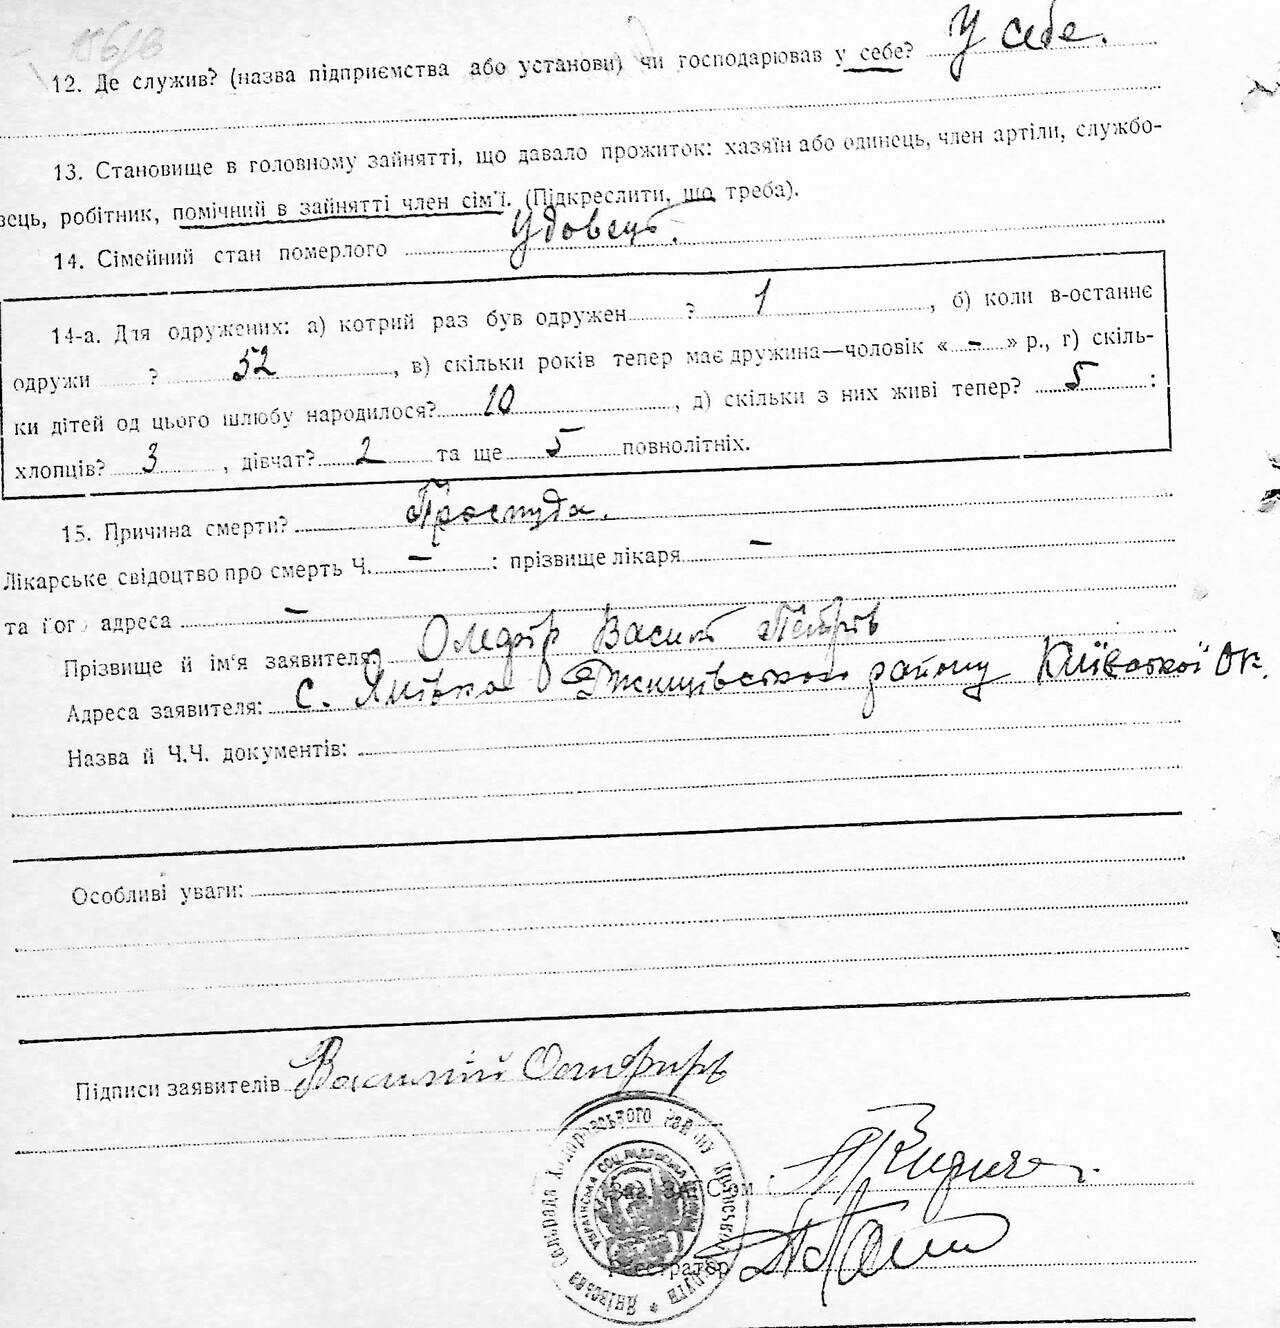 156/в
12. Де служив? (назва підприємства або установи) чи господарював у себе? У себе.
13. Становище в головному зайнятті, що давало прожиток: хазяїн або одинець, член артіли, службо-
вець, робітник, помічний в зайнятті член сім'ї. (Підкреслити, що треба).
14. Сімейний стан померлого Удовець.
14-а. Для одружених: а) котрий раз був одружен ? 1, б) коли в-останнє
одружи ? 52, в) скільки років тепер має дружина—чоловік « - » р., г) скіль-
ки дітей од цього шлюбу народилося? 10, д) скільки з них живі тепер? 5 :
хлопців? 3, дівчат? 2 та ще 5 повнолітніх.
15. Причина смерти? Простуда.
Лікарське свідоцтво про смерть Ч. - : прізвище лікаря -
та його адреса -
Прізвище й ім'я заявителя: Олефір Василь Петрів
Адреса заявителя: с. Янівка району Київської Ок.
Назва й Ч.Ч. документів:
Особливі уваги:
Підписи заявителів Василий
Янівська Сільрада району Київської Округи
УКРАЇНСЬКА СОЦ. РАДЯНСЬКА
Зав. ЗАГС'ом
Реєстратор